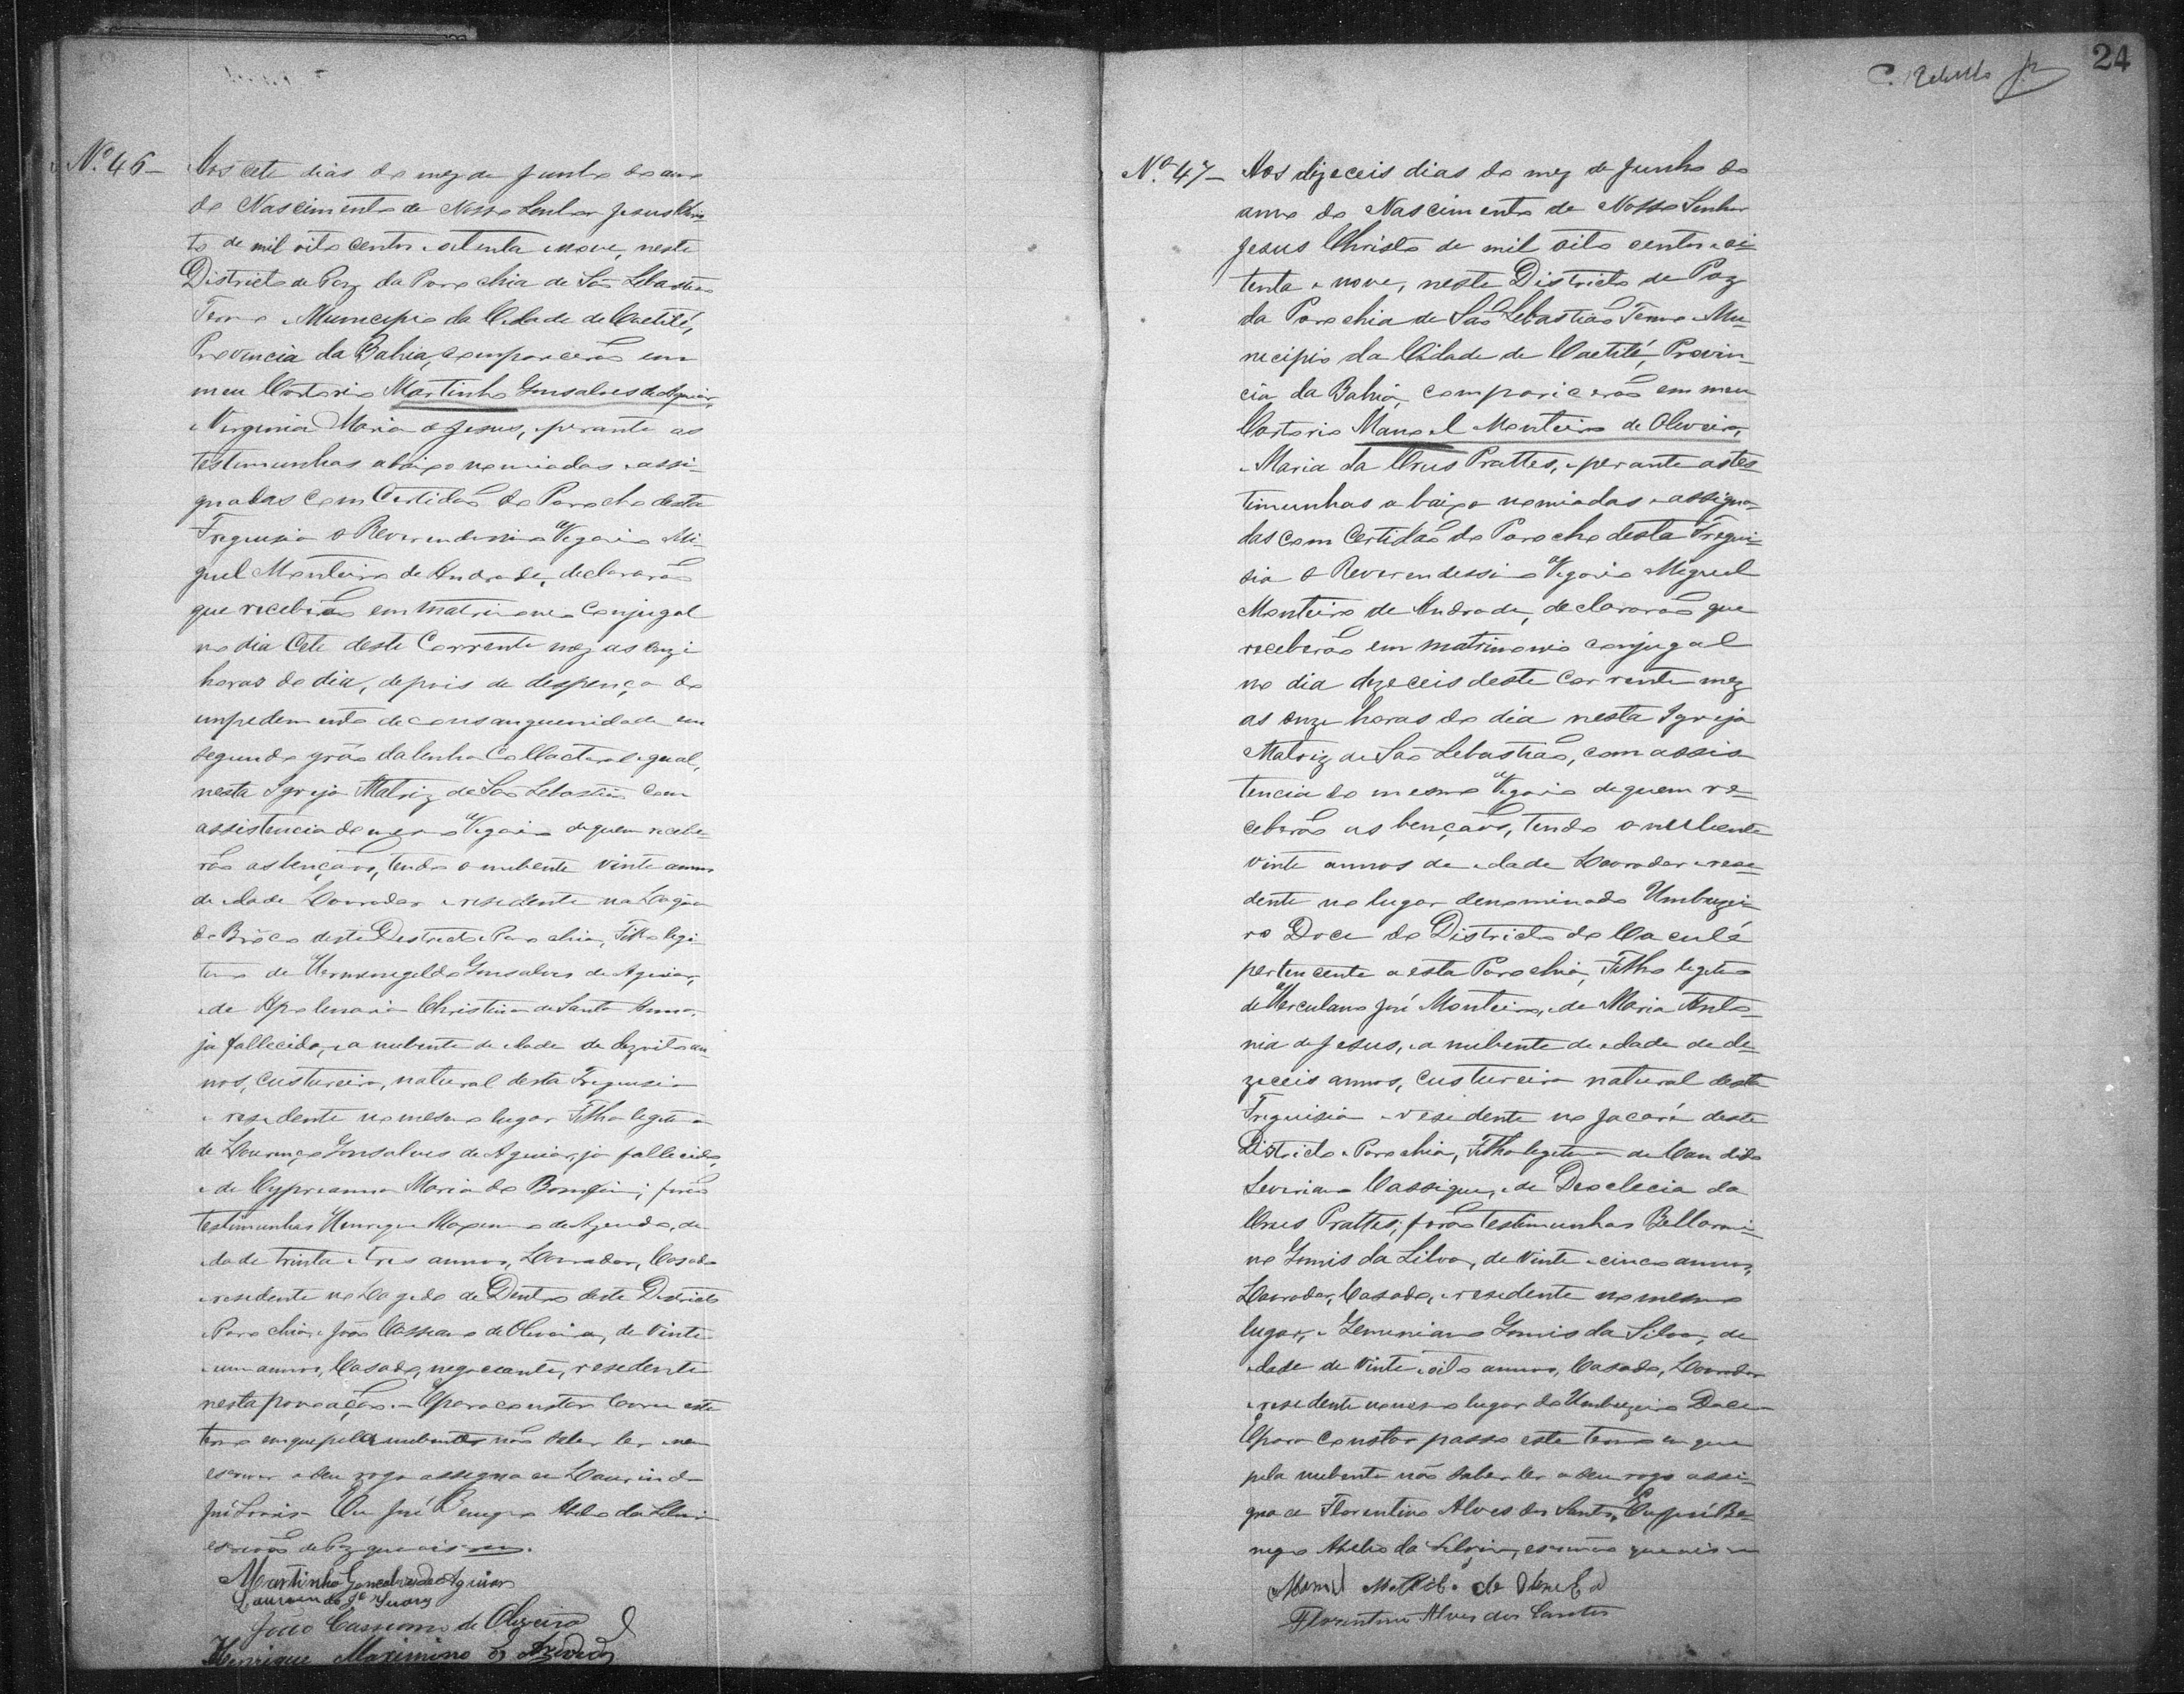 Nº 46 - Aos cete dias do mez de Junho do anno
do Nascimento de Nosso Senhor Jesus Chris-
to de mil oito centos setenta e nove, neste
Districto de Paz da Parochia de São Sebastião
Termo e Municipio da Cidade de Caetité,
Provincia da Bahia, comparcerão em
meu Cartorio Martinho Gonsalves de Aguiar,
e Virginia Maria de Jesus, e perante as
testimunhas abaixo nomiadas e assi-
gnadas com Certidão do Parocho desta
Freguisia o Reverendissimo Vigario Mi-
guel Monteiro de Andrade, declararão
que receberão em matrimonio conjugal
no dia Cete deste Corrente mez as onze
horas do dia, depois de despença do
impedemento de consanguenidade em
segundo gráo da linha Collacteral egual,
nesta Igreja Matriz de São Sebastião com
assistencia do mesmo Vigario de quem recebe-
rão as bençãos, tendo o nubente vinte annos
de edade Lavrador e residente na Lagôa
de deste Destricto e Parochia, Filho legi-
timo de Hermenegildo Gonsalves de Aguiar,
e de Apolenaria Christina de Santa Anna,
ja fallecida, e a nubente de edade de dezoito an-
nos, custureira, natural desta Freguisia
e residente no mesmo lugar Filha legitima
de Lourenço Gonsalves de Aguiar, ja fallecido,
e de Cyprianna Maria do Bomfim; forão
testimunhas Henrique Maximo de Azevedo, de
edade trinta e tres annos, Lavrador, Casado
e residente no Lagedo de Dentro deste Districto
e Parochia e João Cassiano de Oliveira, de vinte
e um annos, Casado, negociante, residente
nesta povoação. E para constar lavrei este
termo em que pela nubente não saber ler e nem
escrever a seu rogo assigna ce Laurindo
José Soares. Eu José Benigno Abelio da Silva
escrivão de Paz que escrevi.
Martinho Gonçalves de Aguiar
Laurindo Je Suares
João Cassiano de Oliveira
Henrique Maximino de Azevedo
C. Rebello Jr
24
Nº 47 - Aos dizeceis dias do mez de Junho do
anno do Nascimento de Nosso Senhor
Jesus Christo de mil oito centos e ci-
tenta e nove, neste Districto de Paz
da Parochia de São Sebastião Termo e Mu-
nicipio da Cidade de Caetité, Provin-
cia da Bahia, compariceraõ em meu
Cartorio Manoel Monteiro de Oliveira,
e Maria da Crus Prattes, e perante as tes-
timunhas abaixo nomiadas e assigna-
das com Certidão do Parocho desta Fregui-
sia o Reverendessimo Vigario Miguel
Monteiro de Andrade, declararão que
receberão em matrimonio conjugal
no dia dizeceis deste corrente mez
as onze horas do dia nesta Igreja
Matriz de São Sebastião, com assis
tencia do mesmo Vigario de quem re-
ceberão as bençãos, tendo o nubente
vinte annos de edade Lavrador e resi-
dente no lugar denominado Umbuzei-
ro Doce do Districto do Caculé
pertencente a esta Parochia, Filho legitimo
de Herculano José Monteiro, e de Maria Anto-
nia de Jesus, e a nubente de edade de de-
zeceis annos, custureira natural desta
Freguisia e residente no Jacaré deste
Districto e Parochia, Filha legitima de Candido
Severiano Cassique, e de Deoclecia da
Crus Prattes; forão testimunhas Bellarmi-
no Gomis da Silva, de vinte e cinco annos,
Lavrador, Casado, e residente no mesmo
lugar, e Geminiano Gomis da Silva, de
edade de vinte e oito annos, Casado, Lavrador
e residente no mesmo lugar do Umbuzeiro Doce
E para constar passo este termo em que
pela nubente não saber ler a seu rogo assi-
gna ce Florentino Alves dos Santos, Eu José Be-
nigno Abelio da Silva, escrivão que escrevi
Manoel de
Florentino Alves dos Santos